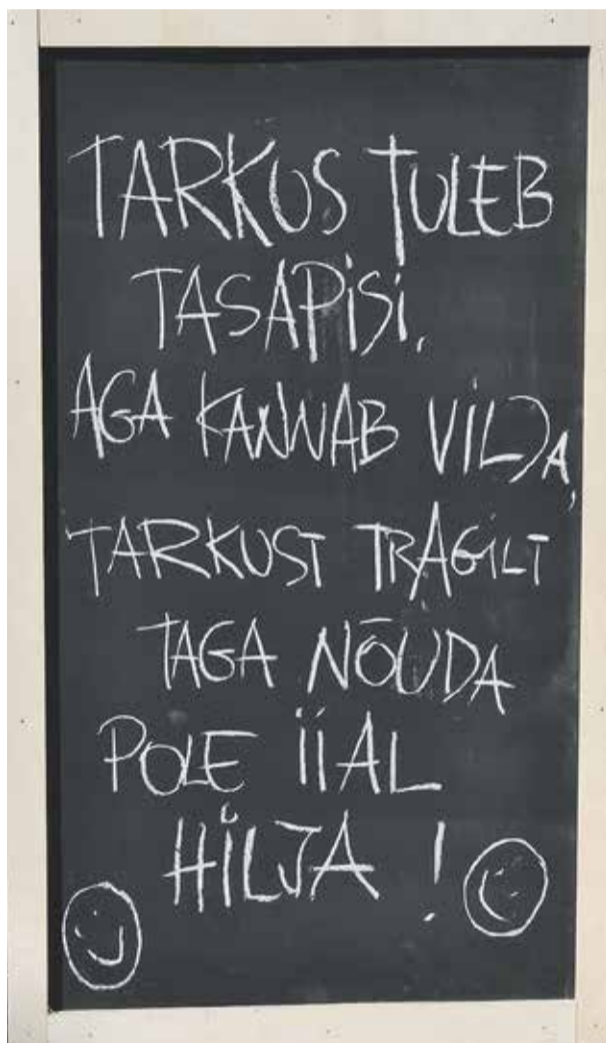 TARKUS TULEB
TASAPiSi,
AGA KANNAB VILJA,
TARKUST TRAGiLT
TAGA NÕUDA
POLE IIAL
HiLJA!